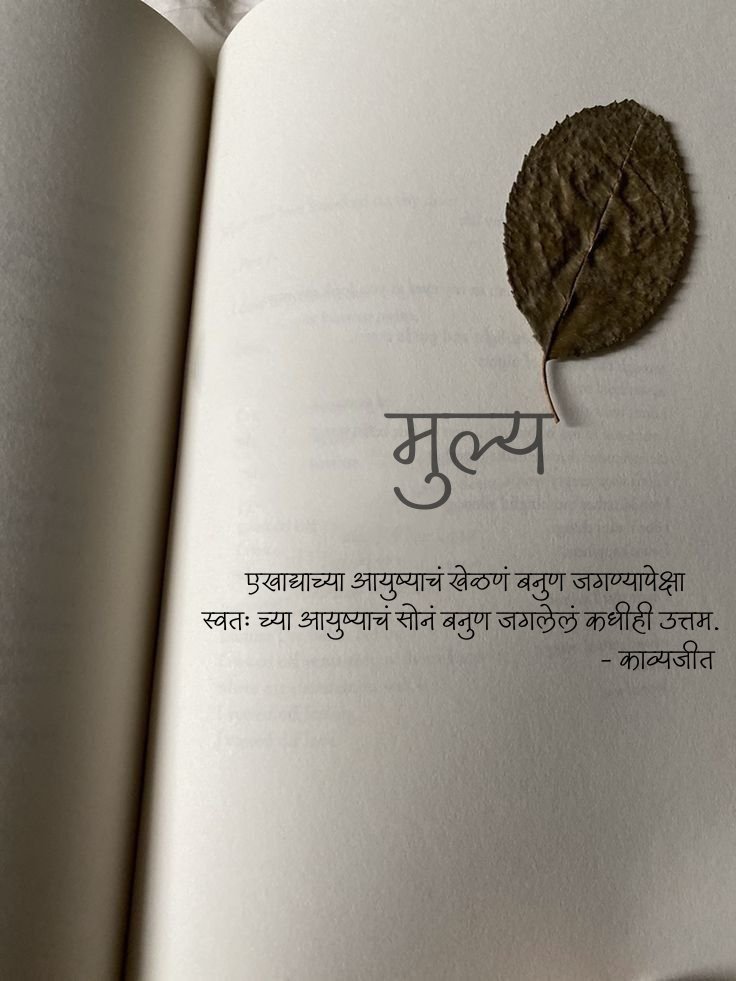 मुल्य
एखाद्याच्या आयुष्याचं खेळणं बनुण जगण्यापेक्षा
स्वतः च्या आयुष्याचं सोनं बनुण जगलेलं कधीही उत्तम.
- काव्यजीत